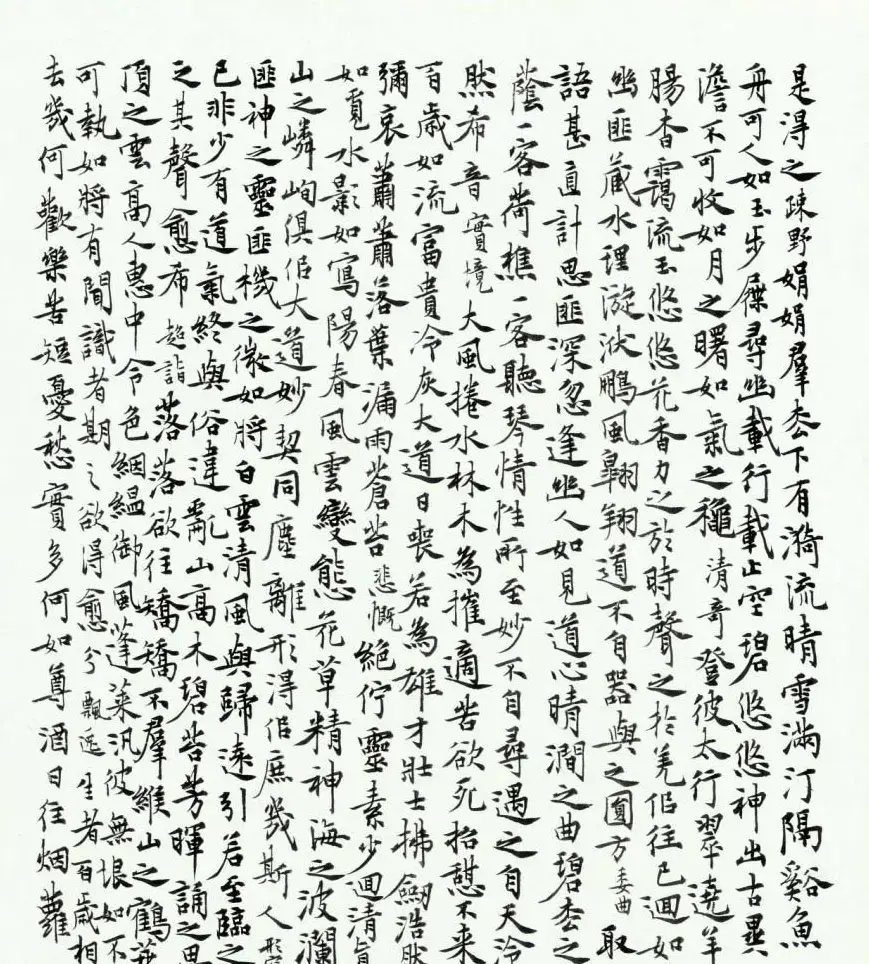 是淂之疎野娟娟羣枩下有漪流晴雪滿汀隔谿魚
舟可人如玉步屧尋幽載行載止空碧悠悠神出古異
澹不可收如月之曙如氣之穐清奇登彼太行翠遶羊
腸杳靄流玉悠悠花香力之於時聲之於羌佀往已迴如
幽匪藏水理漩洑鵬風翺翔道不自器與之圓方委曲取
語甚直計思匪深忽逢幽人如見道心晴澗之曲碧枩之
蔭一客荷樵一客聽琴情性所至妙不自尋遇之自天泠
然希音實境大風捲水林木為摧適苦欲死招憇不来
百歲如流富貴冷灰大道日喪若為雄才壯士拂劒浩然
彌哀蕭蕭落葉漏雨蒼苔悲慨絕佇靈素少迴清真
如覓水影如寫陽春風雲變態花草精神海之波瀾
山之嶙峋俱佀大道妙契同塵離形淂佀庶幾斯人形容
匪神之靈匪機之微如將白雲清風與歸遠引若至臨之
已非少有道氣終與俗違亂山高木碧苔芳暉誦之思
之其聲愈希超詣落落欲往矯矯不羣緱山之鶴華
頂之雲高人惠中令色絪縕御風蓬萊汎彼無垠如不
可執如將有聞識者期之欲得愈分飄逸生者百歲相
去幾何歡樂苦短憂愁實多何如尊酒日往烟蘿